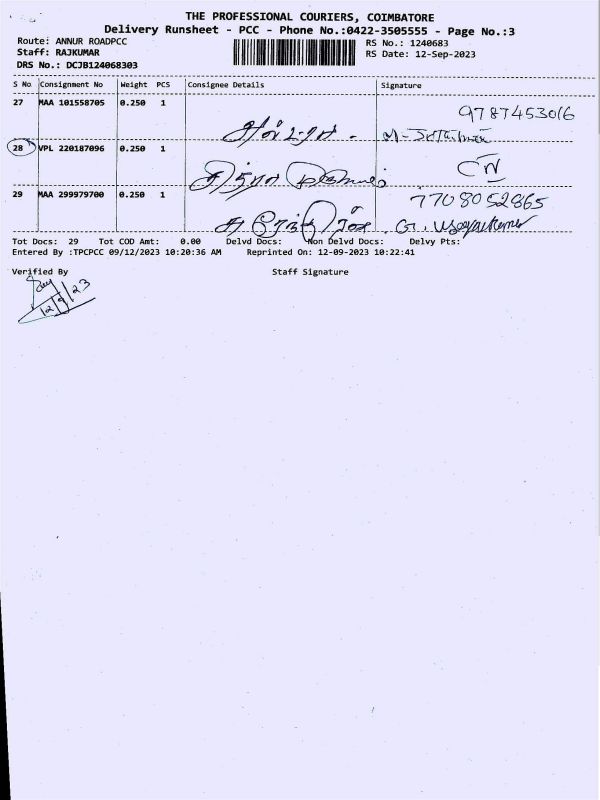 THE PROFESSIONAL COURIERS, COIMBATORE
Delivery Runsheet - PCC - Phone No.:0422-3505555 - Page No.:3
Route: ANNUR ROADPCC
RS No.: 1240683
Staff: RAJKUMAR
RS Date: 12-Sep-2023
DRS No.: DCJB124068303
S No Consignment No Weight PCS Consignee Details Signature
27 MAA 101558705 0.250 1
9787453016
28 VPL 220187096 0.250 1
CN
29 MAA 299979700 0.250 1
7708052865
Tot Docs: 29 Tot COD Amt: 0.00 Delvd Docs: Non Delvd Docs: Delvy Pts:
Entered By :TPCPCC 09/12/2023 10:20:36 AM Reprinted On: 12-09-2023 10:22:41
Verified By Staff Signature
12/9/23